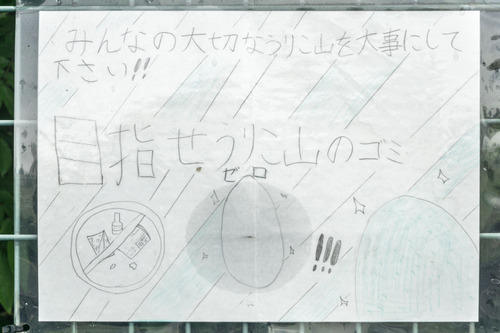 みんなの大切なうりこ山を大事にして
下さい!!
目指せうりこ山のゴミ
ゼロ
!!!